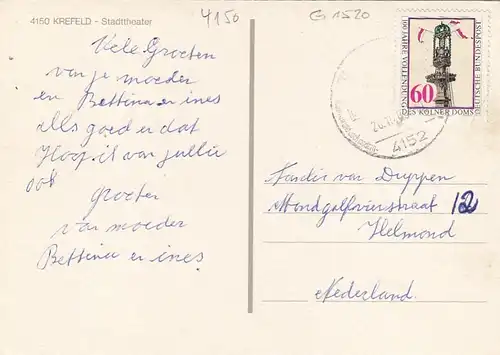 4150 KREFELD - Stadttheater
4150
G 1520
Vele Groeten
van je moeder
en Bettina en ines
alls goed en dat
Hoop ik van jullie
ook
groeten
van moeder
Bettina en ines
100 JAHRE VOLLENDUNG
DES KÖLNER DOMS
DEUTSCHE BUNDESPOST
60
4152
Fam van Duppen
Mondgolfierstraat 12
Helmond
Nederland.